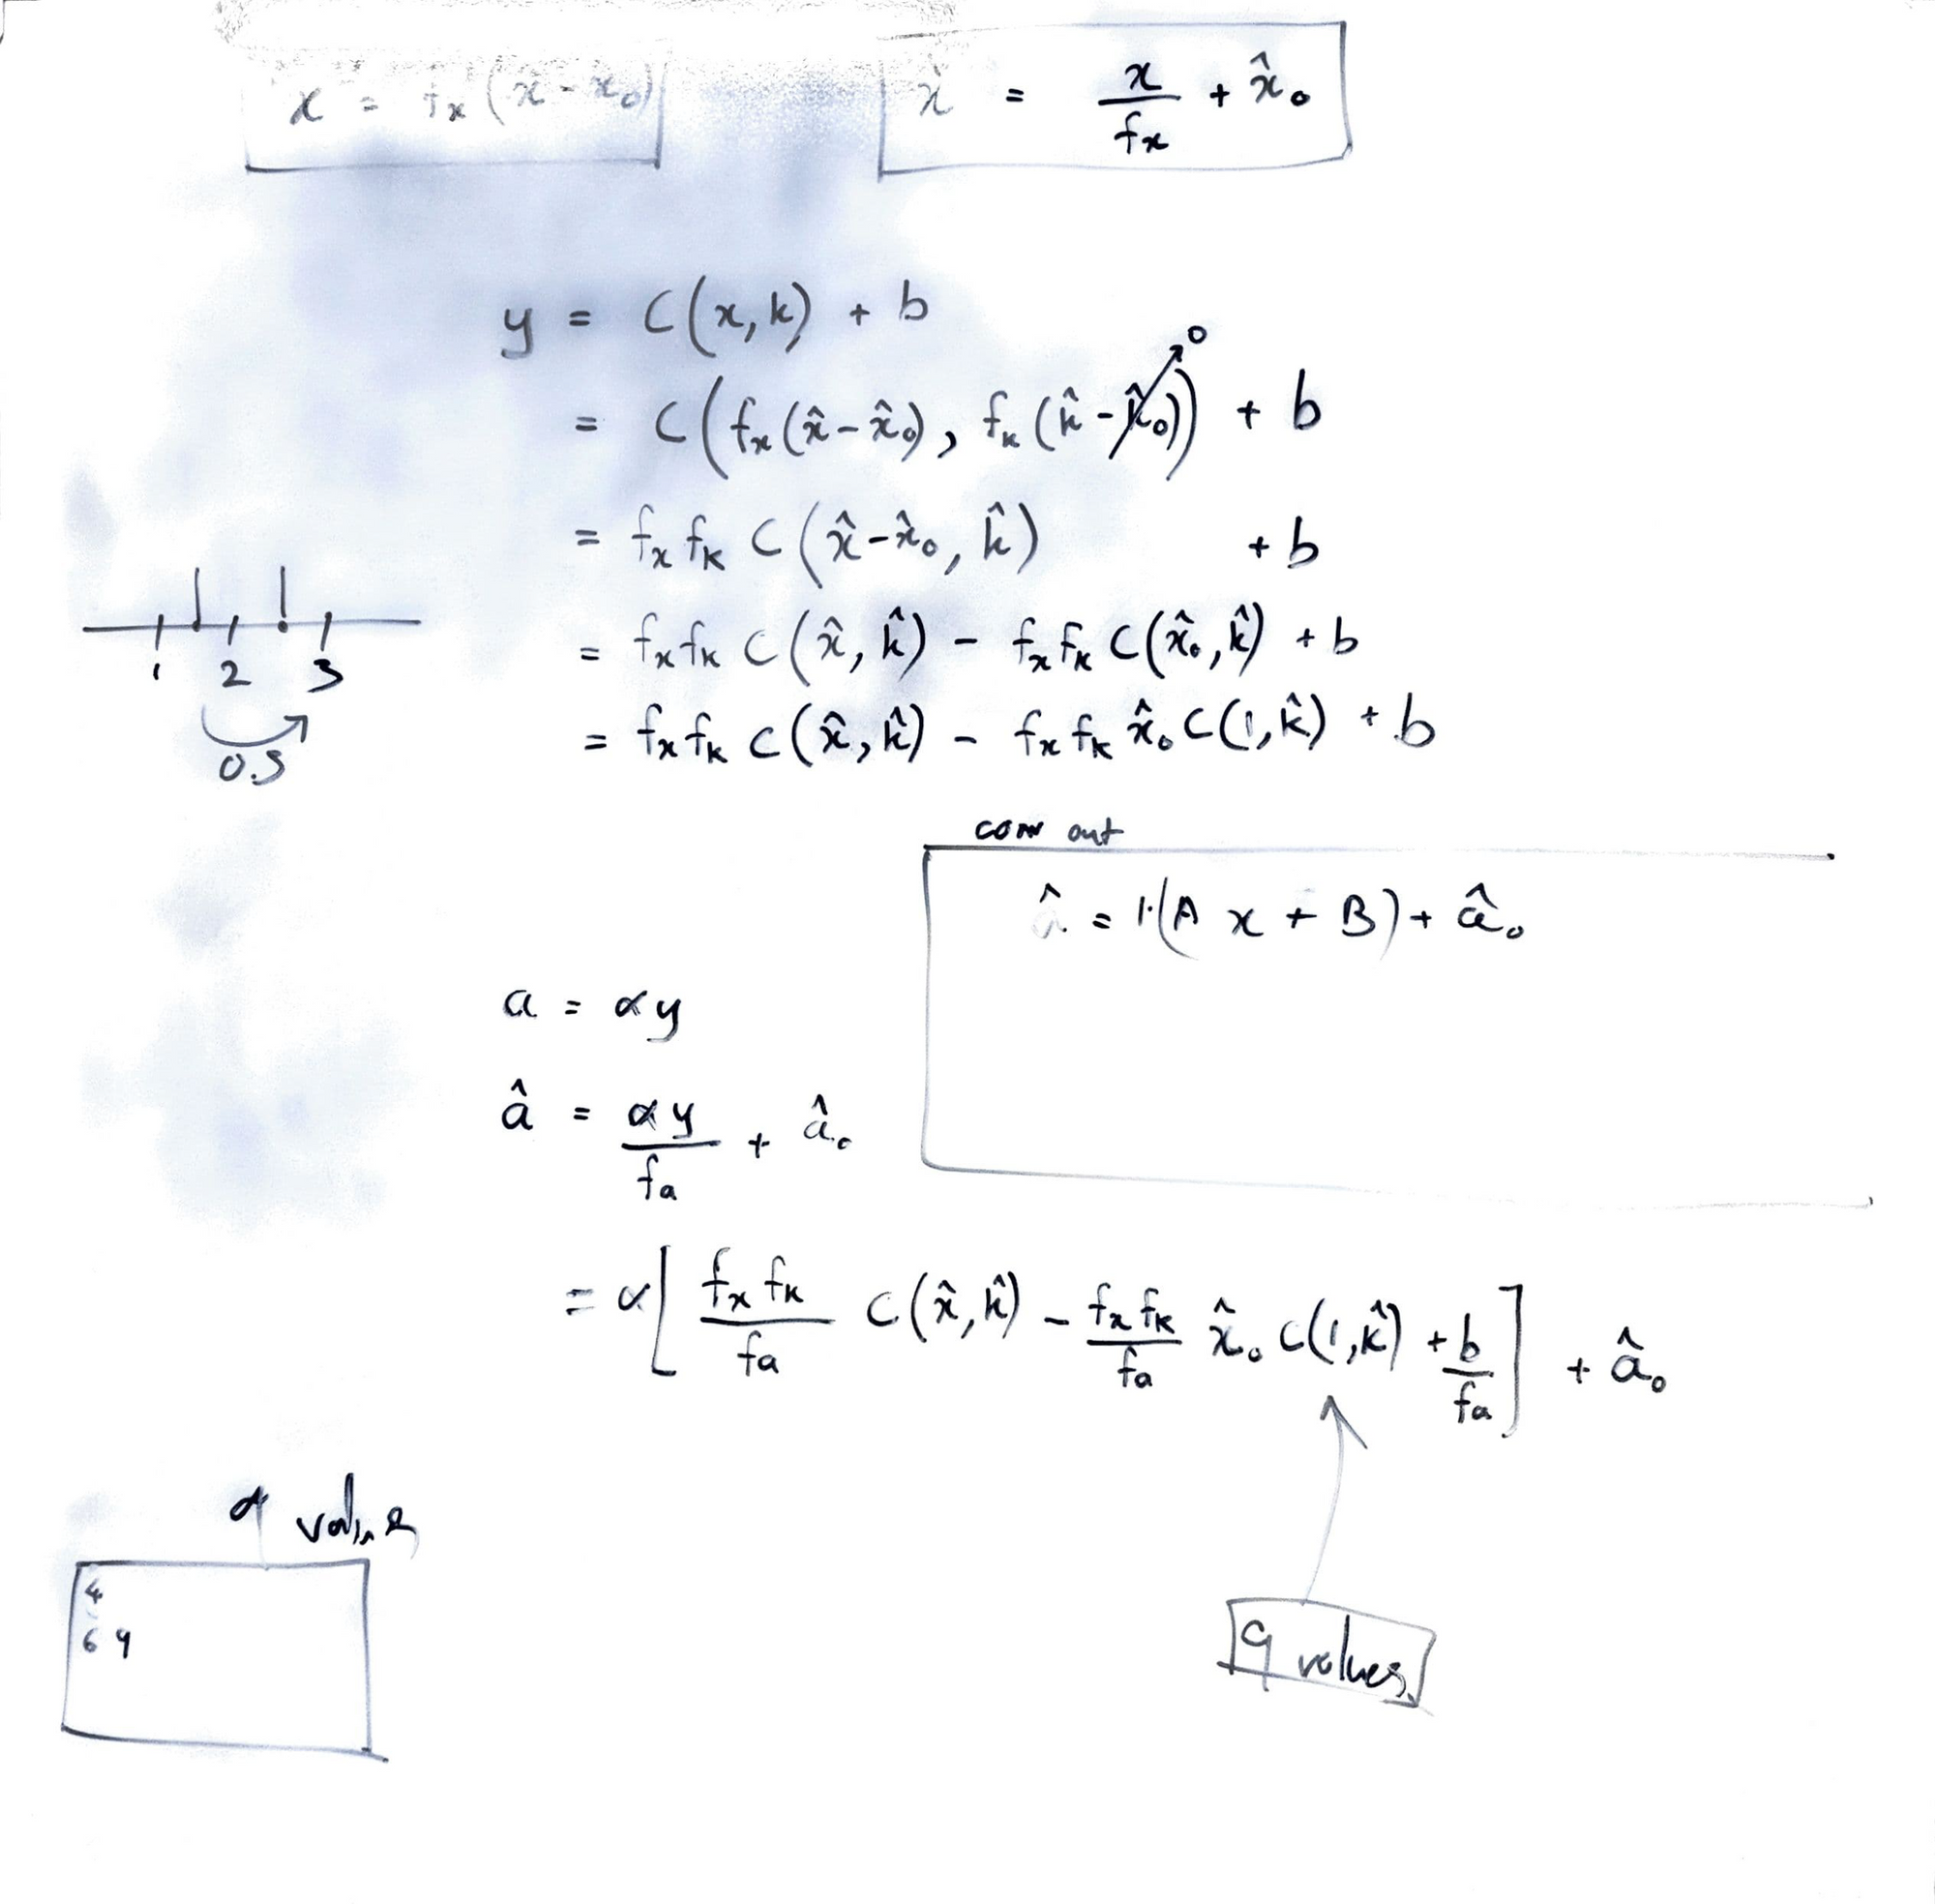 x = fx (x̂ - x̂₀)
x̂ = x/fx + x̂₀
y = C(x, k) + b
= C(fx(x̂ - x̂₀), fk(k̂ - k̂₀)) + b
0
= fx fk C(x̂ - x̂₀, k̂) + b
= fx fk C(x̂, k̂) - fx fk C(x̂₀, k̂) + b
= fx fk C(x̂, k̂) - fx fk x̂₀ C(1, k̂) + b
1 2 3
0.5
conv out
â = 1·(A x + B) + â₀
a = αy
â = αy/fa + â₀
= α[fx fk/fa C(x̂, k̂) - fx fk/fa x̂₀ C(1, k̂) + b/fa] + â₀
9 values
4
6 9
9 values